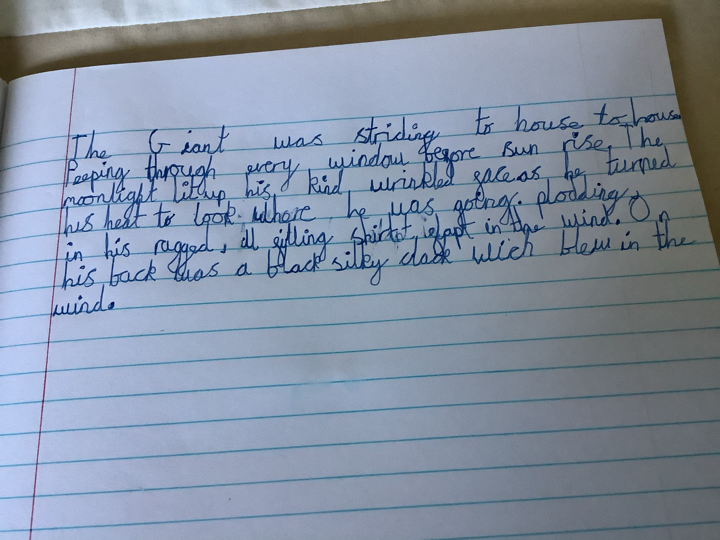 The Giant was striding to house to house
Peeping through every window before sun rise. The
moonlight lit up his kind, wrinkled face as he turned
his heat to look where he was going. plodding,
in his ragged, ill fitting shirt it flapt in the wind. On
his back was a black silky cloak wich blew in the
wind.